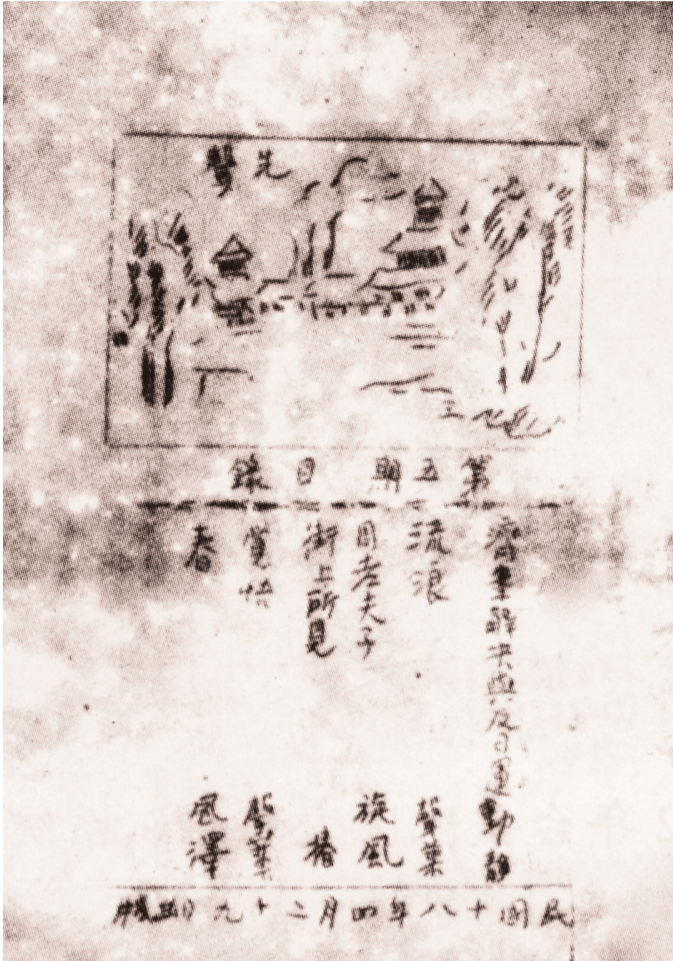 先聲
第五期目錄
濟案解決與反日運動
流浪 葉
周老夫子 旋風
街上所見 椿
覺悟 葉
春 風澤
民國十八年四月二十九日出版